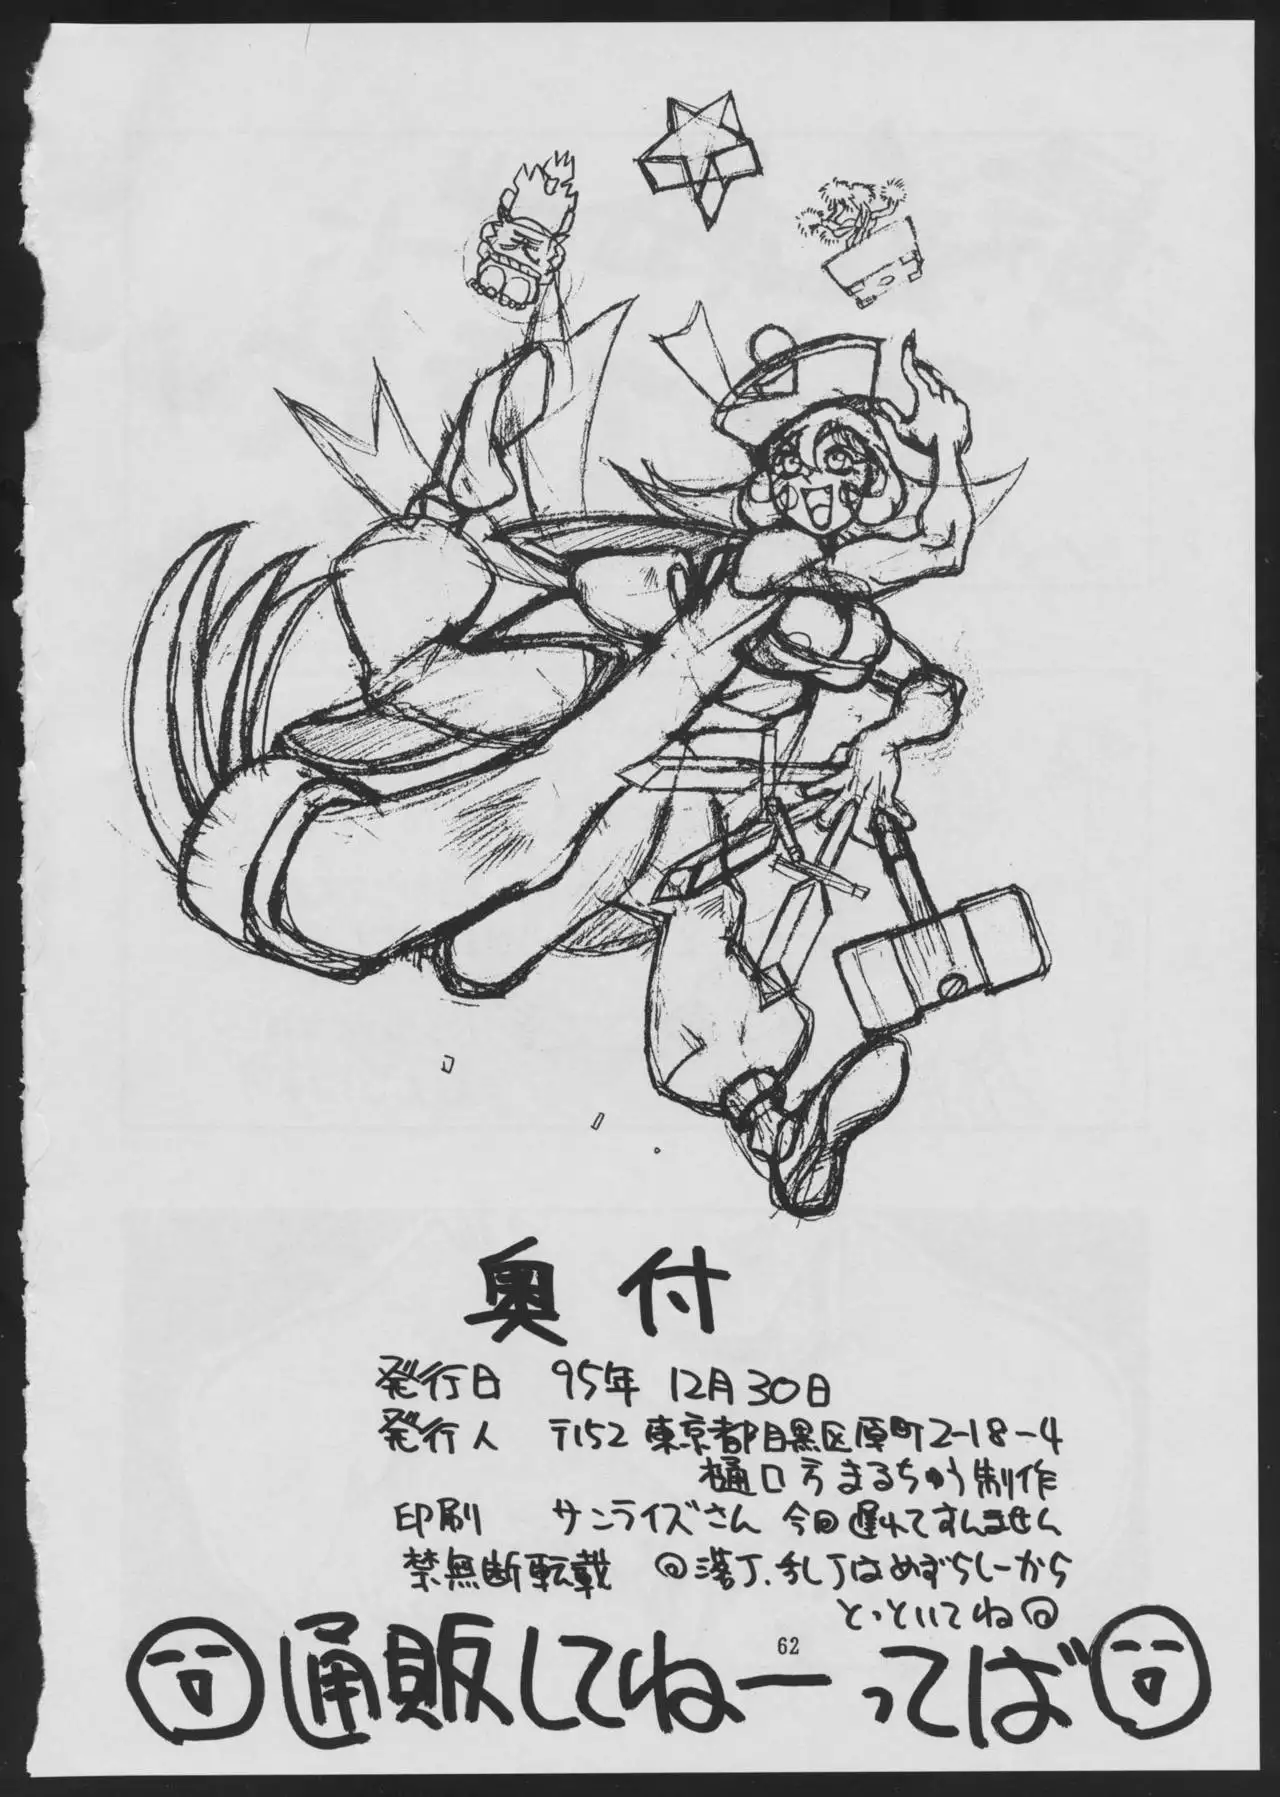 奥付
発行日 95年 12月30日
発行人 〒152 東京都目黒区原町2-18-4
樋口方 まるちゅう制作
印刷 サンライズさん 今回遅れてすんません
禁無断転載 @落丁.乱丁はめずらしーから
とっといてね@
62
通販してねーってば